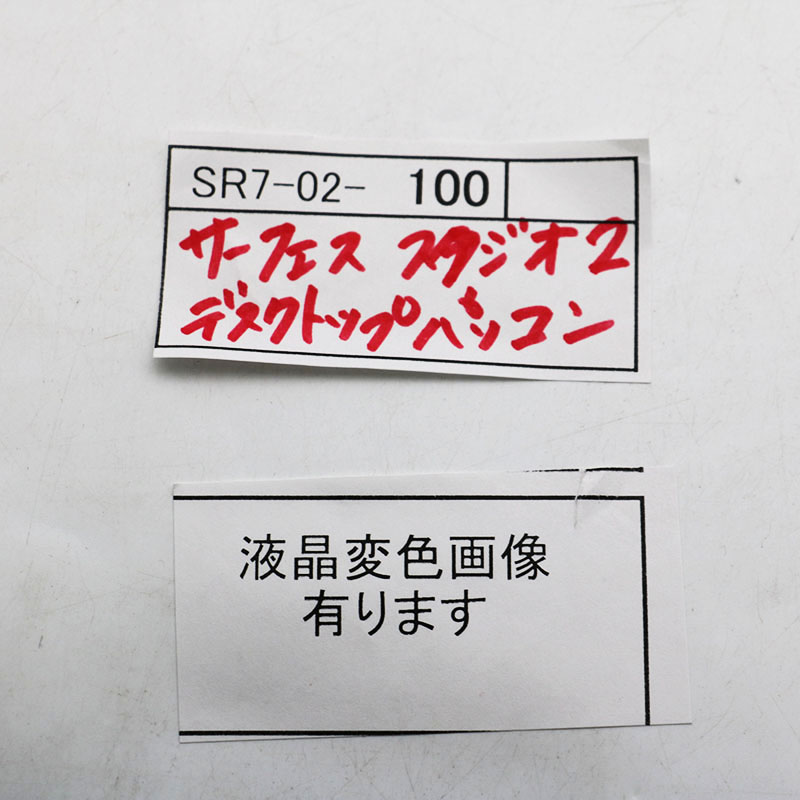 SR7-02- 100
サーフェス スタジオ2
デスクトップパソコン
液晶変色画像
有ります